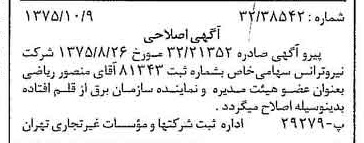 شماره: ۳۲/۳۸۵۴۲ ۱۳۷۵/۱۰/۹
آگهی اصلاحی
پیرو آگهی صادره ۳۲/۲۱۳۵۲ مورخ ۱۳۷۵/۸/۲۶ شرکت
نیروترانس سهامی خاص بشماره ثبت ۸۱۳۴۳ آقای منصور ریاضی
بعنوان عضو هیئت مدیره و نماینده سازمان برق از قلم افتاده
بدینوسیله اصلاح میگردد.
پ-۲۹۲۷۹ اداره ثبت شرکتها و مؤسسات غیرتجاری تهران